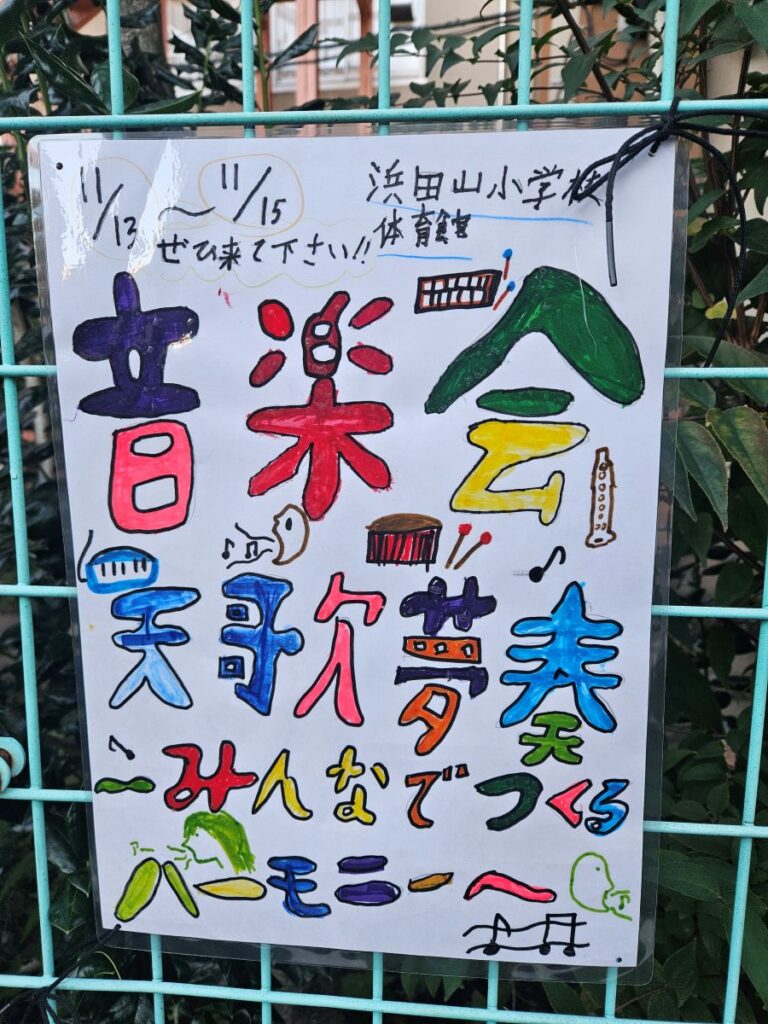 11/13 〜 11/15
浜田山小学校
体育館
ぜひ来て下さい!!
音楽会
天歌夢奏
〜みんなでつくる
ハーモニーへ
アー